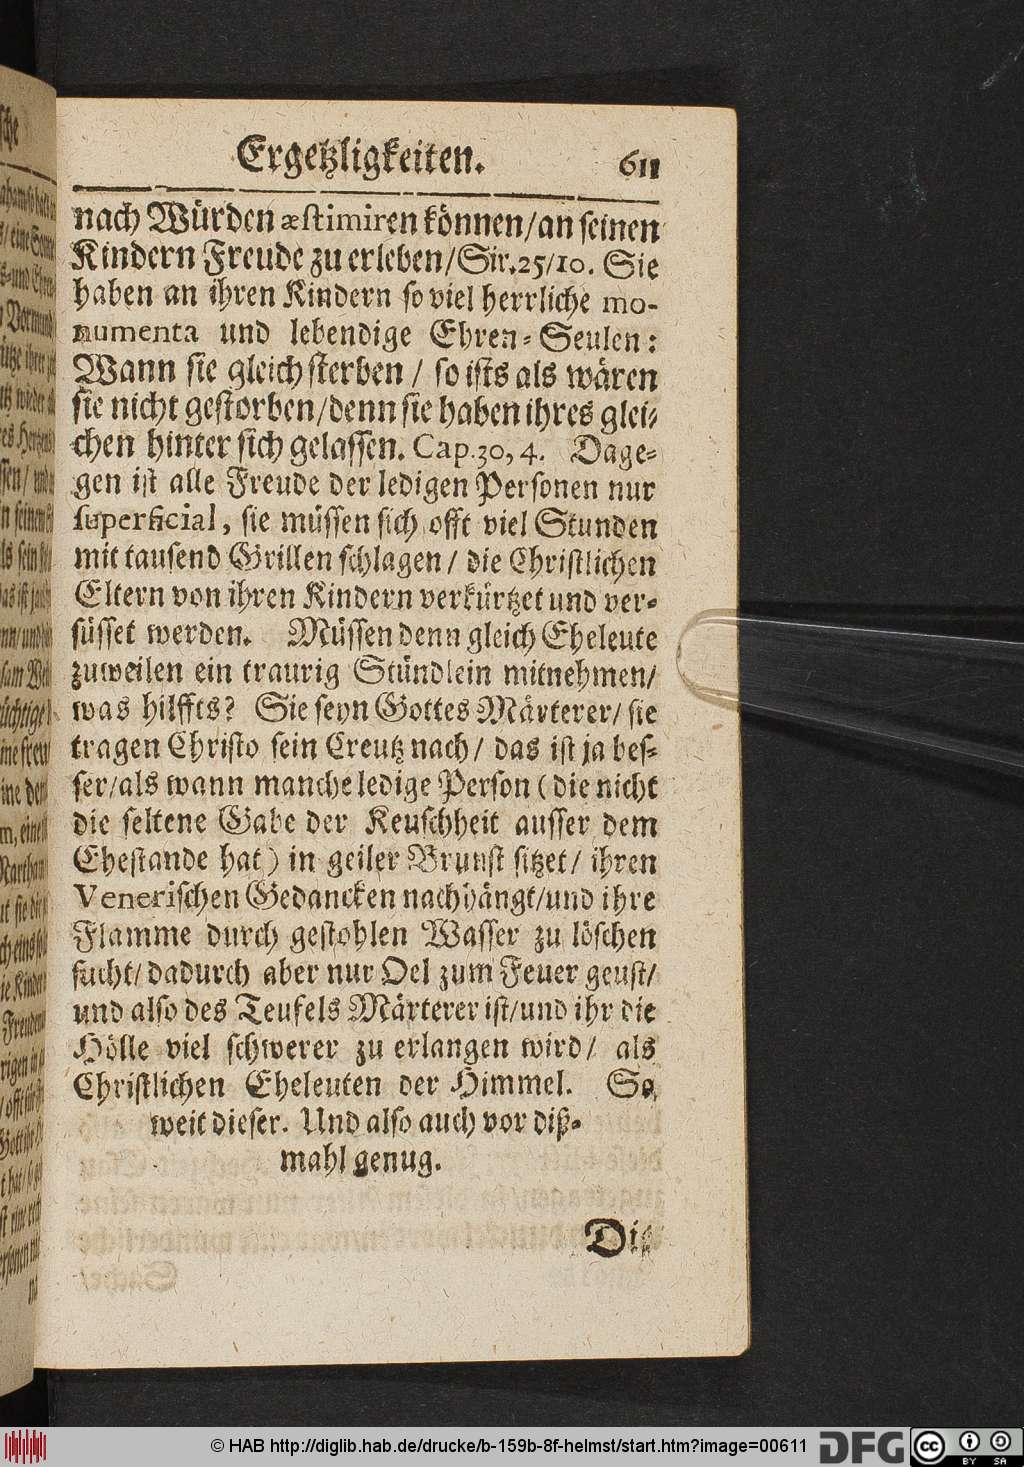 Ergetzligkeiten. 611
nach Würden æstimiren können/an seinen
Kindern Freude zu erleben/Sir.25/10. Sie
haben an ihren Kindern so viel herrliche mo-
numenta und lebendige Ehren-Seulen:
Wann sie gleich sterben / so ists als wären
sie nicht gestorben/denn sie haben ihres glei-
chen hinter sich gelassen. Cap.30,4. Dage-
gen ist alle Freude der ledigen Personen nur
superficial, sie müssen sich offt viel Stunden
mit tausend Grillen schlagen / die Christlichen
Eltern von ihren Kindern verkürtzet und ver-
süsset werden. Müssen denn gleich Eheleute
zuweilen ein traurig Stündlein mitnehmen/
was hilffts? Sie seyn Gottes Märterer/ sie
tragen Christo sein Creutz nach/ das ist ja bes-
ser/als wann manche ledige Person (die nicht
die seltene Gabe der Keuschheit ausser dem
Ehestande hat) in geiler Brunst sitzet/ ihren
Venerischen Gedancken nachhängt/und ihre
Flamme durch gestohlen Wasser zu löschen
sucht/ dadurch aber nur Oel zum Feuer geust/
und also des Teufels Märterer ist/und ihr die
Hölle viel schwerer zu erlangen wird/ als
Christlichen Eheleuten der Himmel. So
weit dieser. Und also auch vor diß-
mahl genug.
Die
© HAB http://diglib.hab.de/drucke/b-159b-8f-helmst/start.htm?image=00611 DFG cc BY SA